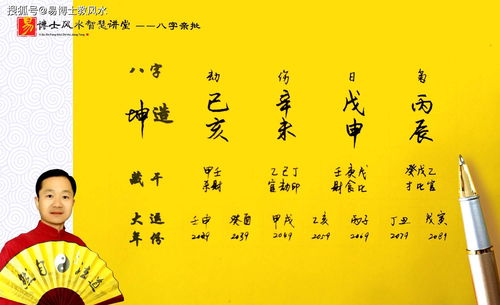 搜狐号@易博士教风水
易 博士风水智慧讲堂 ——八字亲批
八字 劫 伤 日 枭
坤造 己亥 辛未 戊申 丙辰
藏干 甲壬 乙己丁 壬庚戊 癸戊乙
杀财 官劫印 财食比 才比官
大运 壬申 癸酉 甲戌 乙亥 丙子 丁丑 戊寅
年份 2029 2039 2049 2059 2069 2079 2089